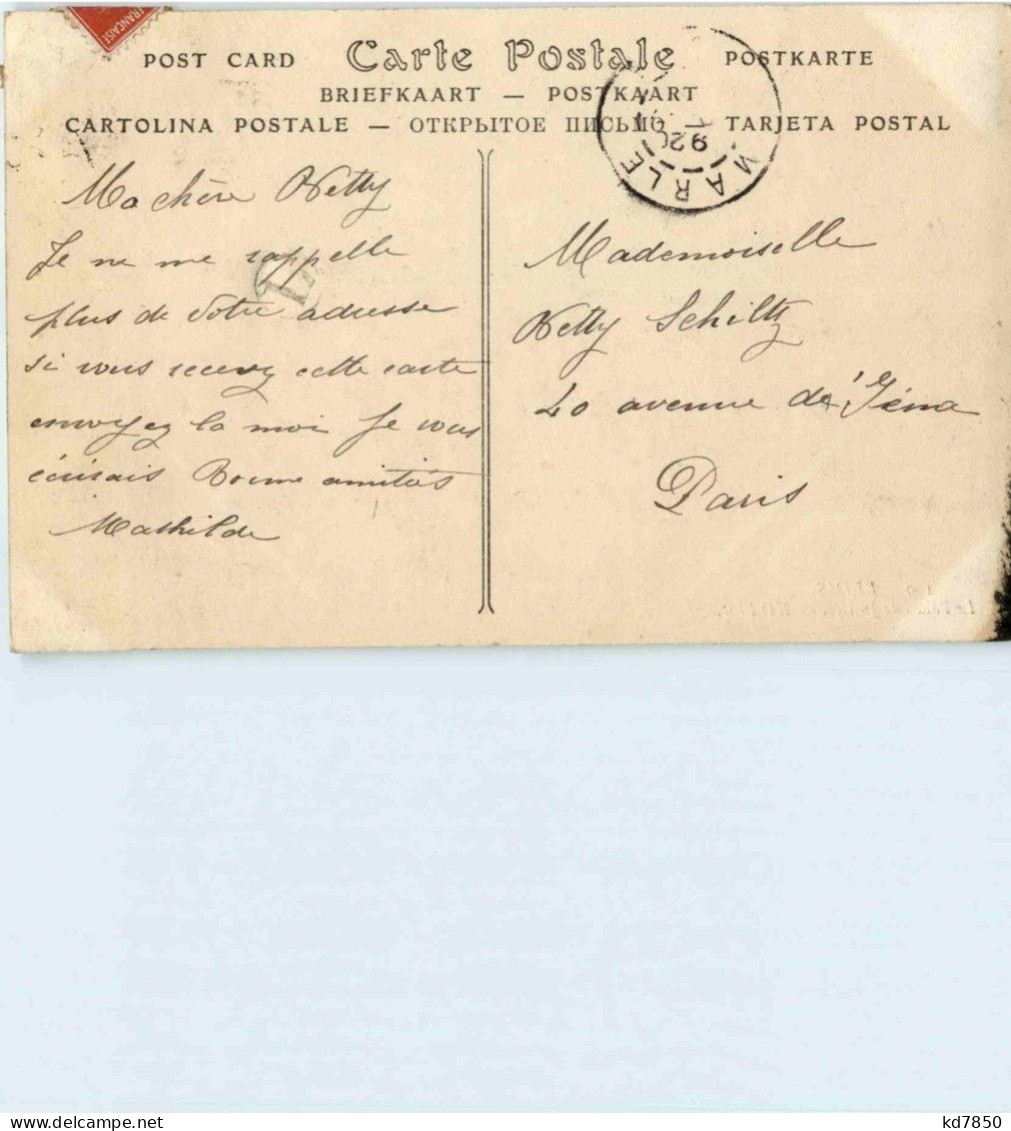 FRANÇAISE
POST CARD Carte Postale POSTKARTE
BRIEFKAART — POSTKAART
CARTOLINA POSTALE — ОТКРЫТОЕ ПИСЬМО — TARJETA POSTAL
MARLE
Ma chère Netty
Je ne me rappelle
plus de Votre adresse
si vous recevez cette carte
envoyez la moi Je vous
écrirais Bonne amitiés
Mathilde
Mademoiselle
Netty Schiltz
40 avenue d'Iéna
Paris
kd7850